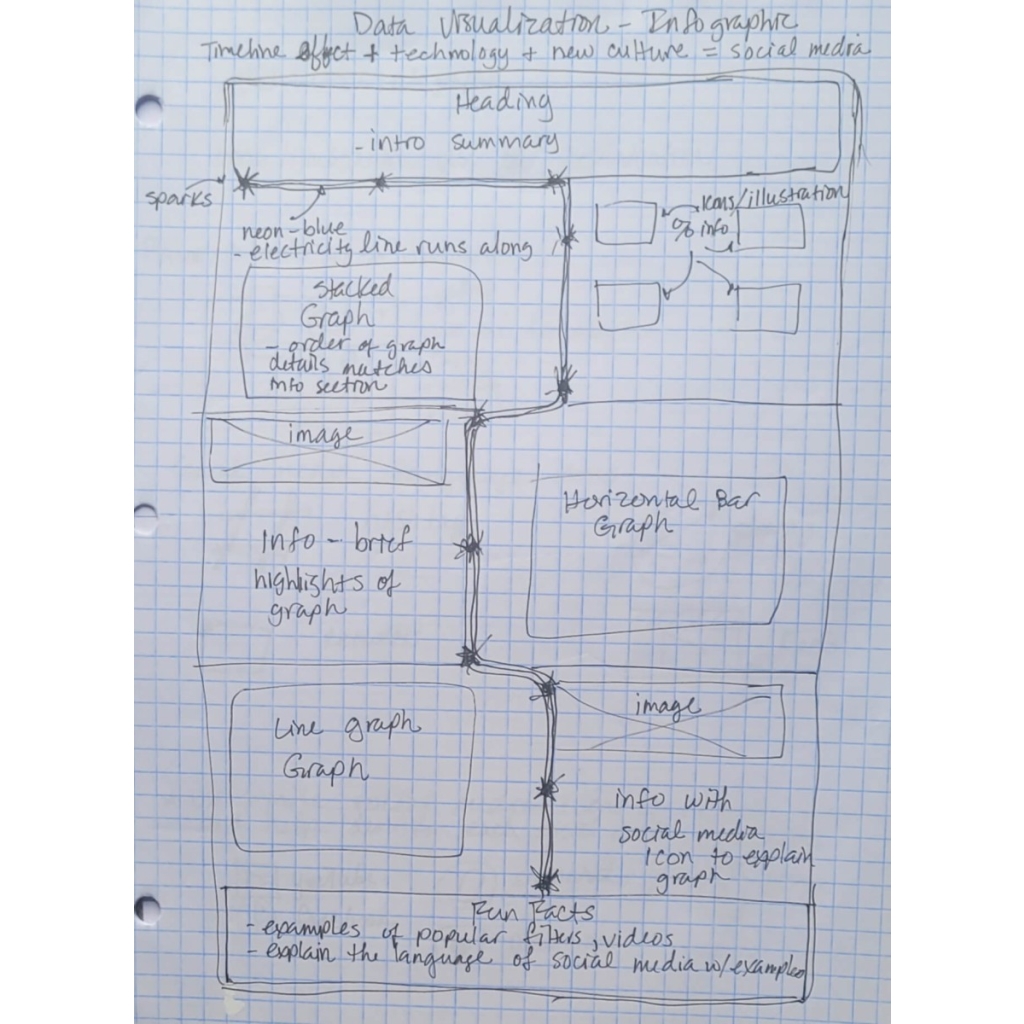 Data Visualization - Infographic
Timeline effect + technology + new culture = social media
Heading
- intro summary
sparks
neon-blue
- electricity line runs along
Icons/illustration
% info
Stacked
Graph
- order of graph
details matches
info section
image
Horizontal Bar
Graph
Info - brief
highlights of
graph
Line graph
Graph
image
info with
social media
Icon to explain
graph
Fun Facts
- examples of popular filters, videos
- explain the language of social media w/examples